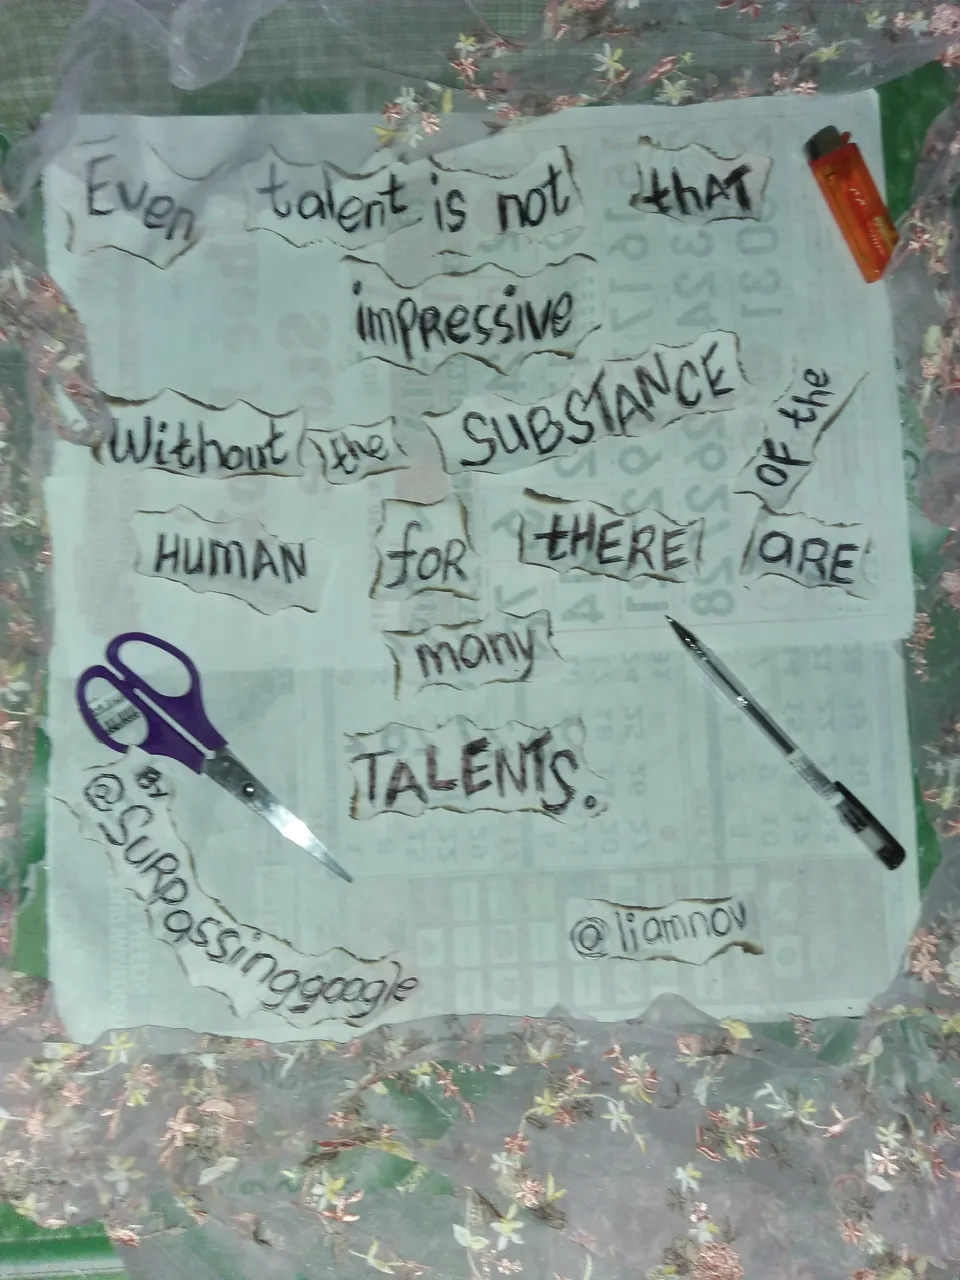 Even talent is not thAT
imPRessivE
Without the SUBSTANCE OF the
HUmAN foR tHERE aRE
many
TALENTS.
BY
@SuRpassinggoogle
@liamnov